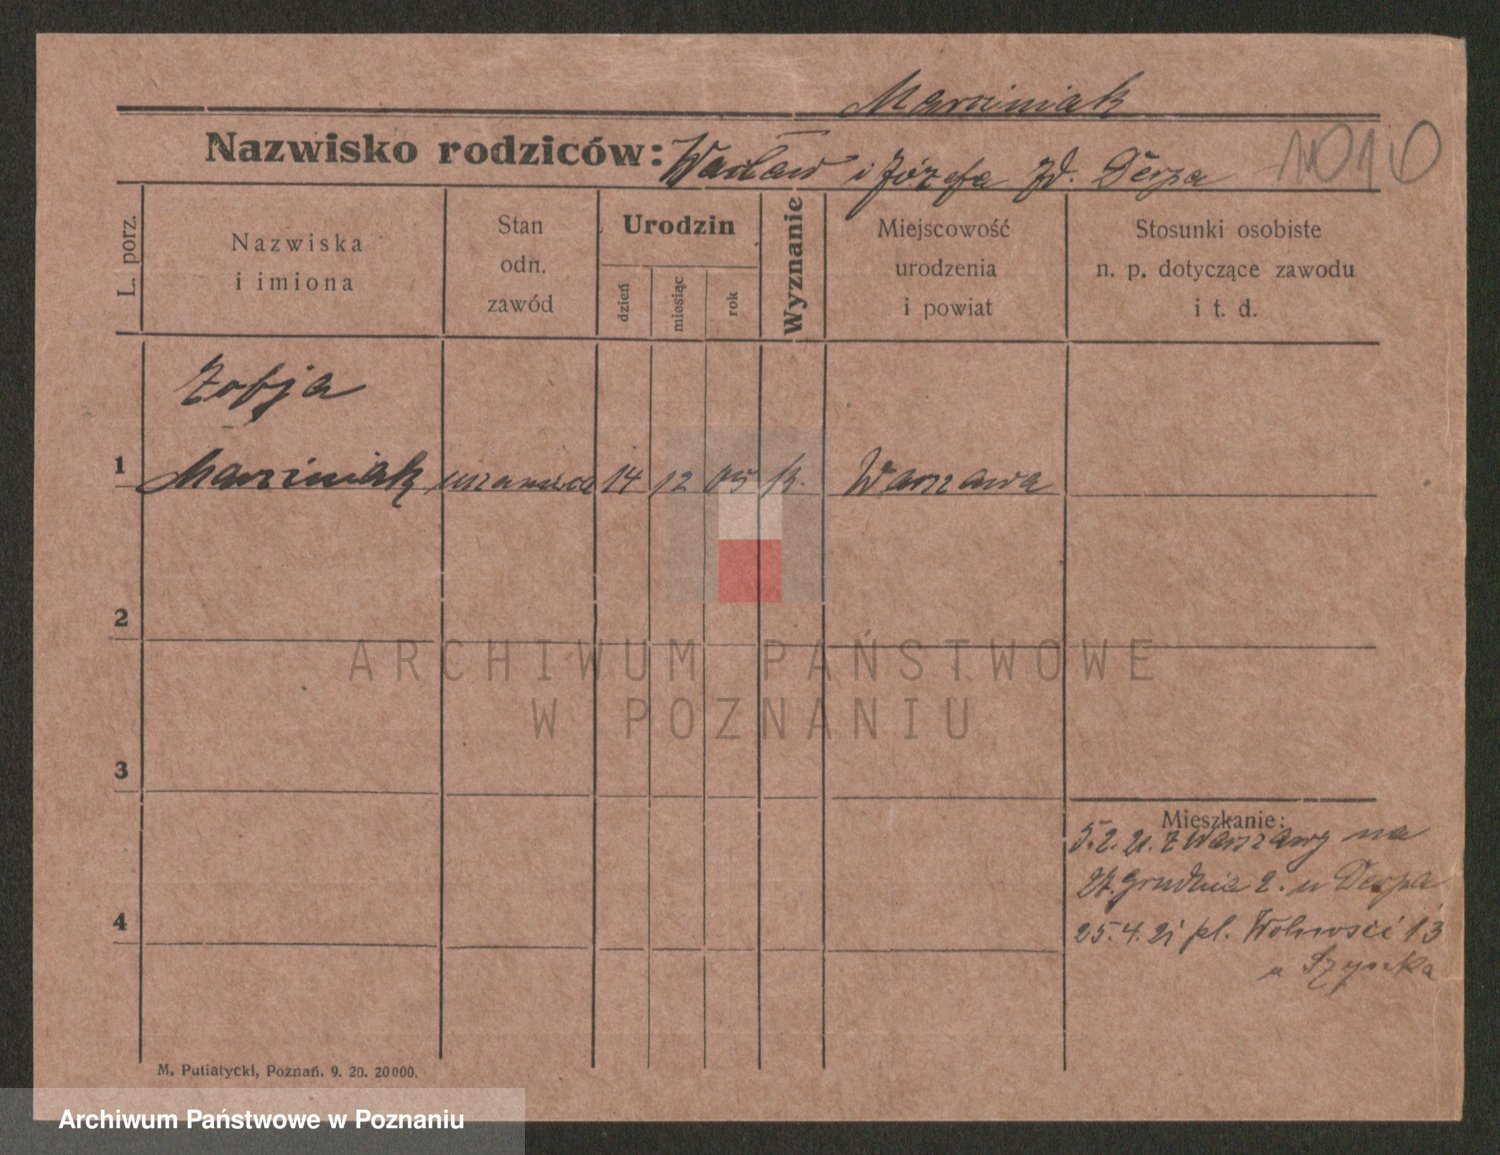 Marciniak
Nazwisko rodziców: Wacław i Józefa zd. Derpa 1010
L. porz.
Nazwiska
i imiona
Stan
odn.
zawód
Urodzin
dzień
miesiąc
rok
Wyznanie
Miejscowość
urodzenia
i powiat
Stosunki osobiste
n. p. dotyczące zawodu
i t. d.
Zofja
1 Marciniak 14 12 05 k. Warszawa
2
ARCHIWUM PAŃSTWOWE
W POZNANIU
3
Mieszkanie:
5.2.21. z Warszawy na
27. Grudnia 2. u Derpa
4
25.4.21 pl. Wolności 13
u
M. Putiatycki, Poznań. 9. 20. 20000.
Archiwum Państwowe w Poznaniu